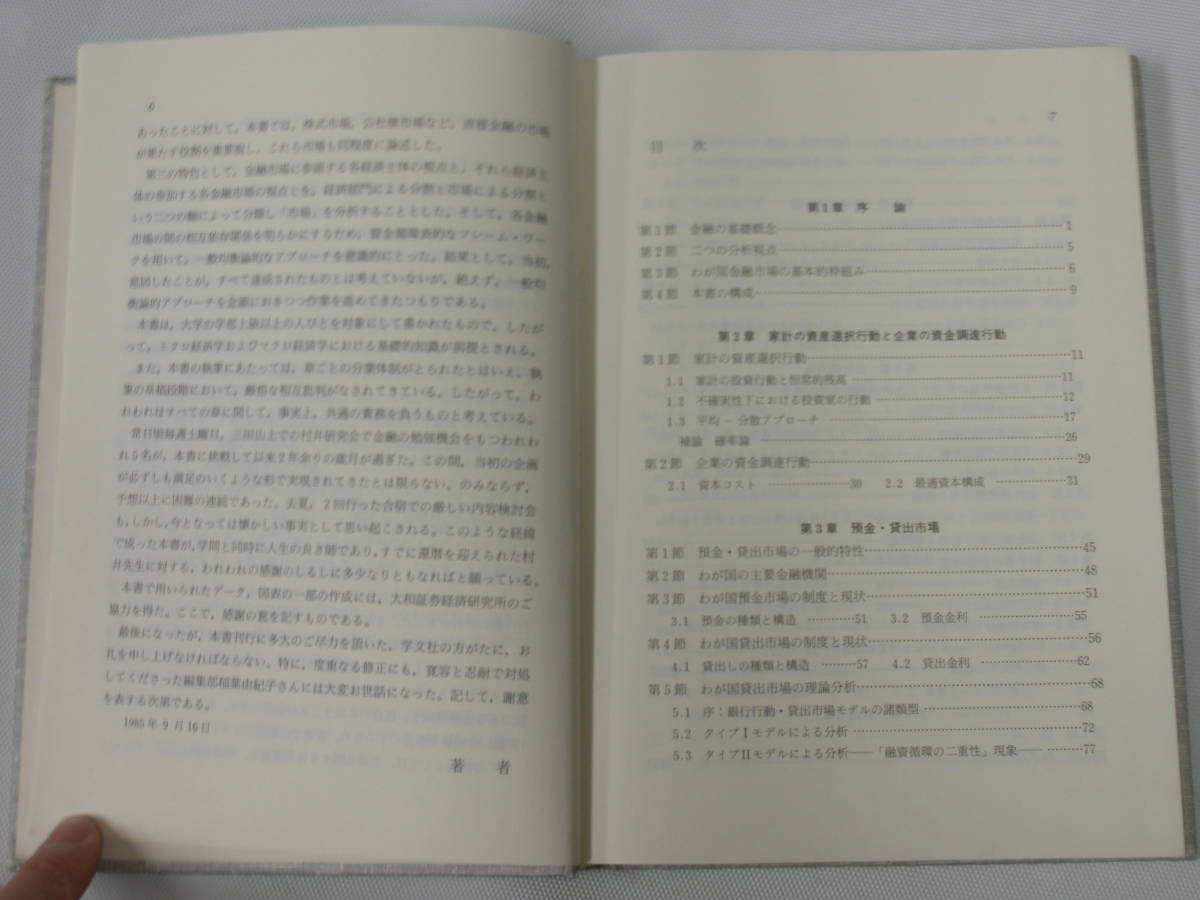 6
あったことに対して，本書では，株式市場，公社債市場など，直接金融の市場
が果たす役割を重要視し，これら市場も同程度に論述した。
第三の特色として，金融市場に参画する各経済主体の視点と，それら経済主
体の参加する各金融市場の視点とを，経済部門による分割と市場による分割と
いう二つの軸によって分類し「市場」を分析することとした。そして，各金融
市場の間の相互依存関係を明らかにするため，資金循環表的なフレーム・ワー
クを用いて，一般均衡論的なアプローチを意識的にとった。結果として，当初，
意図したことが，すべて達成されたものとは考えていないが，絶えず，一般均
衡論的アプローチを念頭におきつつ作業を進めてきたつもりである。
本書は，大学の学部上級以上の人びとを対象にして書かれたもので，したが
って，ミクロ経済学およびマクロ経済学における基礎的知識が前提とされる。
また，本書の執筆にあたっては，章ごとの分業体制がとられたとはいえ，執
筆の草稿段階において，厳格な相互批判がなされてきている。したがって，わ
れわれはすべての章に関して，事実上，共通の責務を負うものと考えている。
常日頃毎週土曜日，三田山上での村井研究会で金融の勉強機会をもつわれわ
れ5名が，本書に挑戦して以来2年余りの歳月が過ぎた。この間，当初の企画
が必ずしも満足のいくような形で実現されてきたとは限らない。のみならず，
予想以上に困難の連続であった。去夏，2回行った合宿での厳しい内容検討会
も，しかし，今となっては懐かしい事実として思い起こされる。このような経緯
で成った本書が，学問と同時に人生の良き師であり，すでに還暦を迎えられた村
井先生に対する，われわれの感謝のしるしに多少なりともなればと願っている。
本書で用いられたデータ，図表の一部の作成には，大和証券経済研究所のご
協力を得た。ここで，感謝の意を記すものである。
最後になったが，本書刊行に多大のご尽力を頂いた，学文社の方がたに，お
礼を申し上げなければならない。特に，度重なる修正にも，寛容と忍耐で対処
してくださった編集部稲葉由紀子さんには大変お世話になった。記して，謝意
を表する次第である。
1985年9月16日
著　者
7
目　次
第1章 序　論
第1節 金融の基礎概念……1
第2節 二つの分析視点……5
第3節 わが国金融市場の基本的枠組み……6
第4節 本書の構成……9
第2章 家計の資産選択行動と企業の資金調達行動
第1節 家計の資産選択行動……11
1.1 家計の投資行動と恒常的残高……11
1.2 不確実性下における投資家の行動……12
1.3 平均－分散アプローチ……17
補論 確率論……26
第2節 企業の資金調達行動……29
2.1 資本コスト……30 2.2 最適資本構成……31
第3章 預金・貸出市場
第1節 預金・貸出市場の一般的特性……45
第2節 わが国の主要金融機関……48
第3節 わが国預金市場の制度と現状……51
3.1 預金の種類と構造……51 3.2 預金金利……55
第4節 わが国貸出市場の制度と現状……56
4.1 貸出しの種類と構造……57 4.2 貸出金利……62
第5節 わが国貸出市場の理論分析……68
5.1 序：銀行行動・貸出市場モデルの諸類型……68
5.2 タイプIモデルによる分析……72
5.3 タイプIIモデルによる分析――「融資循環の二重性」現象――……77